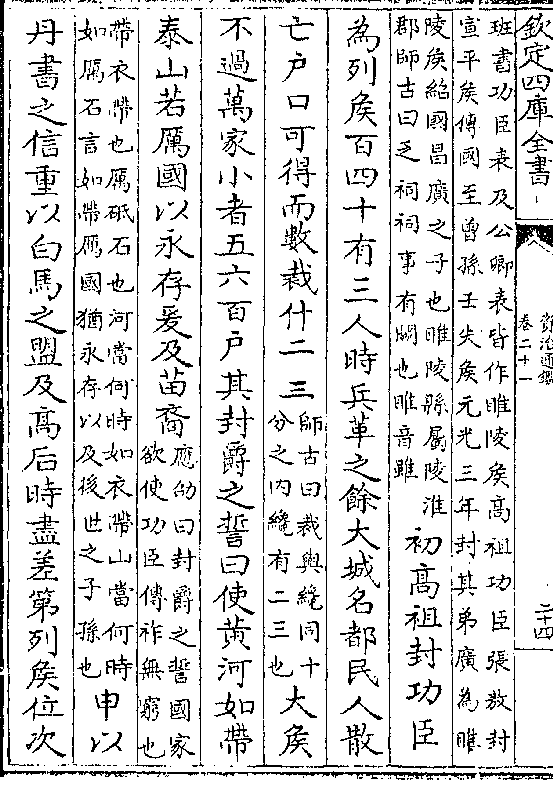 欽定四庫全書
資治通鑑
卷二十一
二十四
班書功臣表及公卿表皆作睢陵矦高祖功臣張敖封
宣平矦傳國至曾孫王失矦元光三年封其弟廣為睢
陵矦紿國昌廣之子也睢陵縣屬陵淮
郡師古曰乏祠祠事有闕也睢音雖
初高祖封功臣
為列矦百四十有三人時兵革之餘大城名都民人散
亡户口可得而數裁什二三
師古曰裁與纔同十
分之内纔有二三也
大矦
不過萬家小者五六百户其封爵之誓曰使黄河如帶
泰山若厲國以永存爰及苗裔
應劭曰封爵之誓國家
欲使功臣傳祚無窮也
帶衣帶也厲砥石也河當何時如衣帶山當何時
如厲石言如帶厲國猶永存以及後世之子孫也
申以
丹書之信重以白馬之盟及高后時盡差第列矦位次